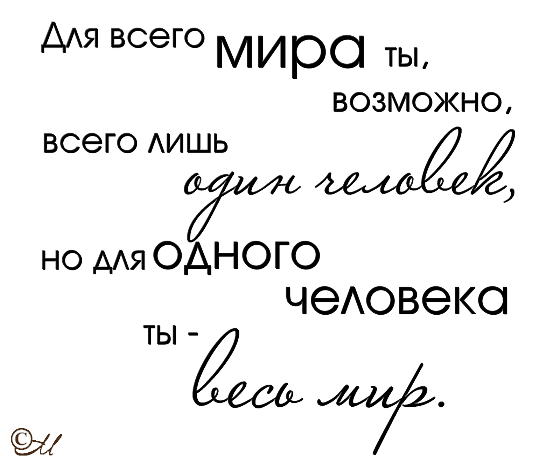 Для всего мира ты,
возможно,
всего лишь
один человек,
но для одного
человека
ты -
весь мир.
©М